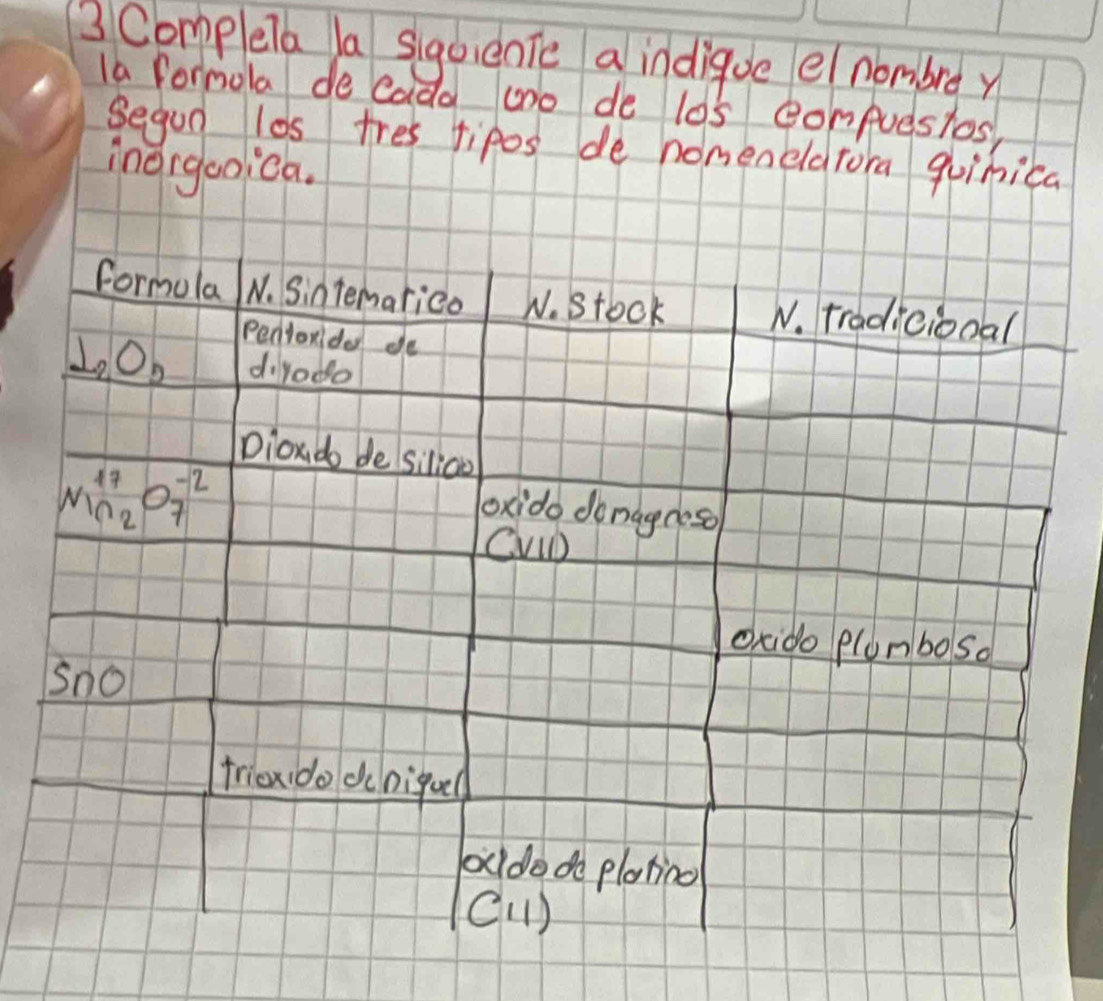 3 Completa la siguiente a indique el nombre y
la formola de cada uno de los compuestos,
Segun los tres tipos de nomenclatura quimica
inorganica.
formola N. Sintematico N. Stock N. tradicional
I₂O₅ Pentoxido de
diyodo
Dioxido de silicio
Mn₂⁺⁷ O₇⁻²
oxido de magneso
(VII)
oxido plomboso
SnO
trioxido de niquel
oxido de platino
(II)